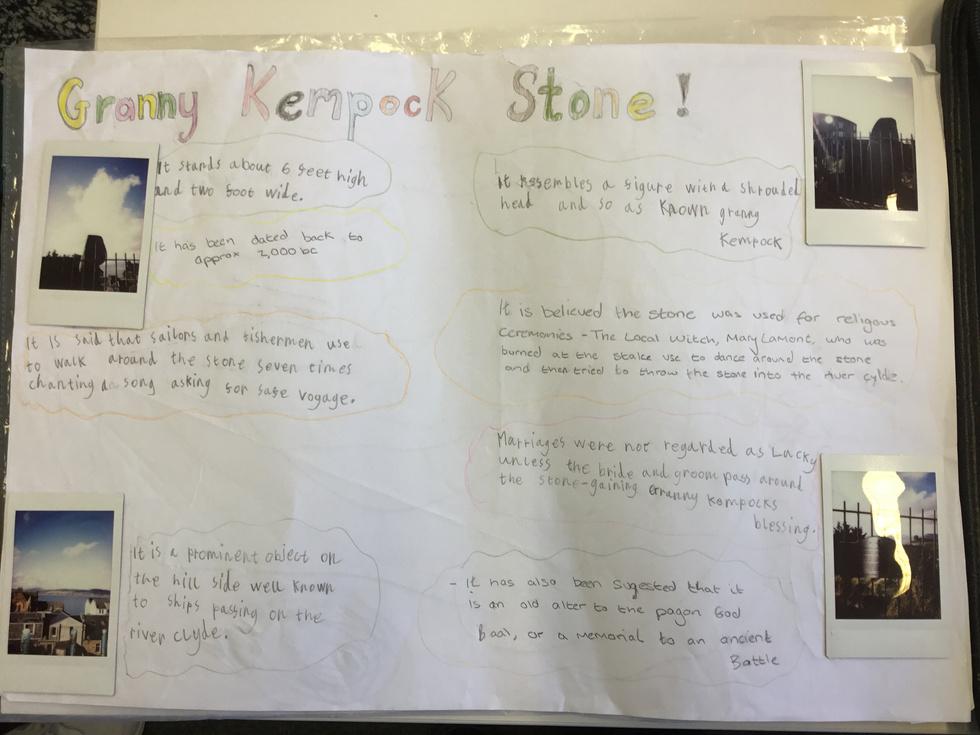 Granny Kempock Stone!
It stands about 6 feet high
and two foot wide.
It has been dated back to
approx 2,000 bc
It is said that sailors and fishermen use
to walk around the stone seven times
chanting a song asking for safe voyage.
It is a prominent object on
the hill side well known
to ships passing on the
river clyde.
It resembles a figure with a shrouded
head and so as known granny
Kempock
It is believed the stone was used for religous
ceremonies - The Local witch, Mary Lamont, who was
burned at the stake use to dance around the stone
and then tried to throw the stone into the river cylde.
Marriages were not regarded as Lucky
unless the bride and groom pass around
the stone-gaining Granny Kempocks
blessing.
- It has also been sugested that it
is an old alter to the pagan God
Baal, or a memorial to an ancient
Battle